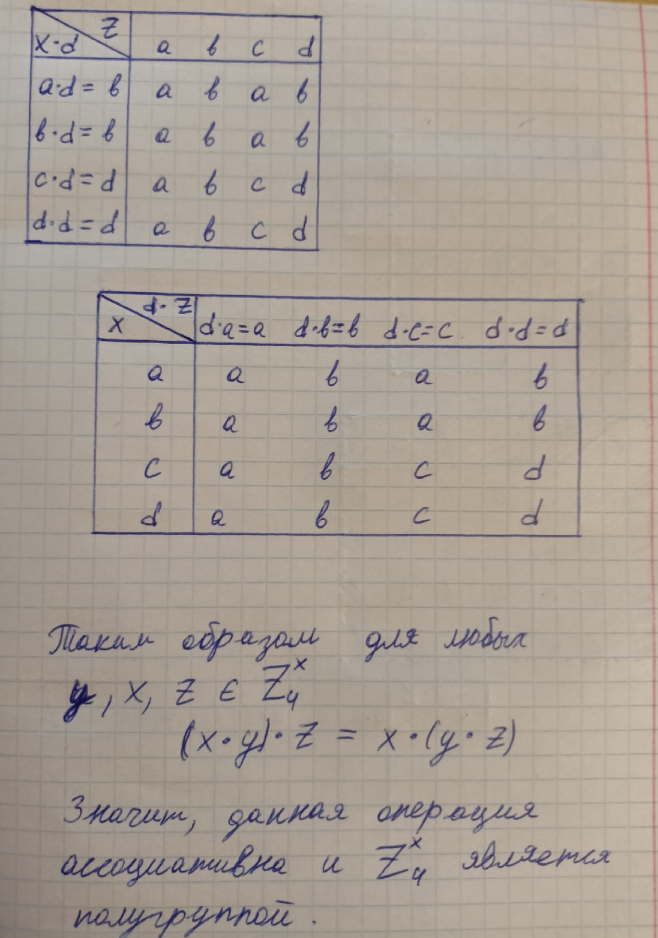 x·d Z a b c d
a·d = b a b a b
b·d = b a b a b
c·d = d a b c d
d·d = d a b c d
x d·Z d·a=a d·b=b d·c=c d·d=d
a a b a b
b a b a b
c a b c d
d a b c d
Таким образом для любых
y, x, z ∈ Z₄ˣ
(x·y)·z = x·(y·z)
Значит, данная операция
ассоциативна и Z₄ˣ является
полугруппой.